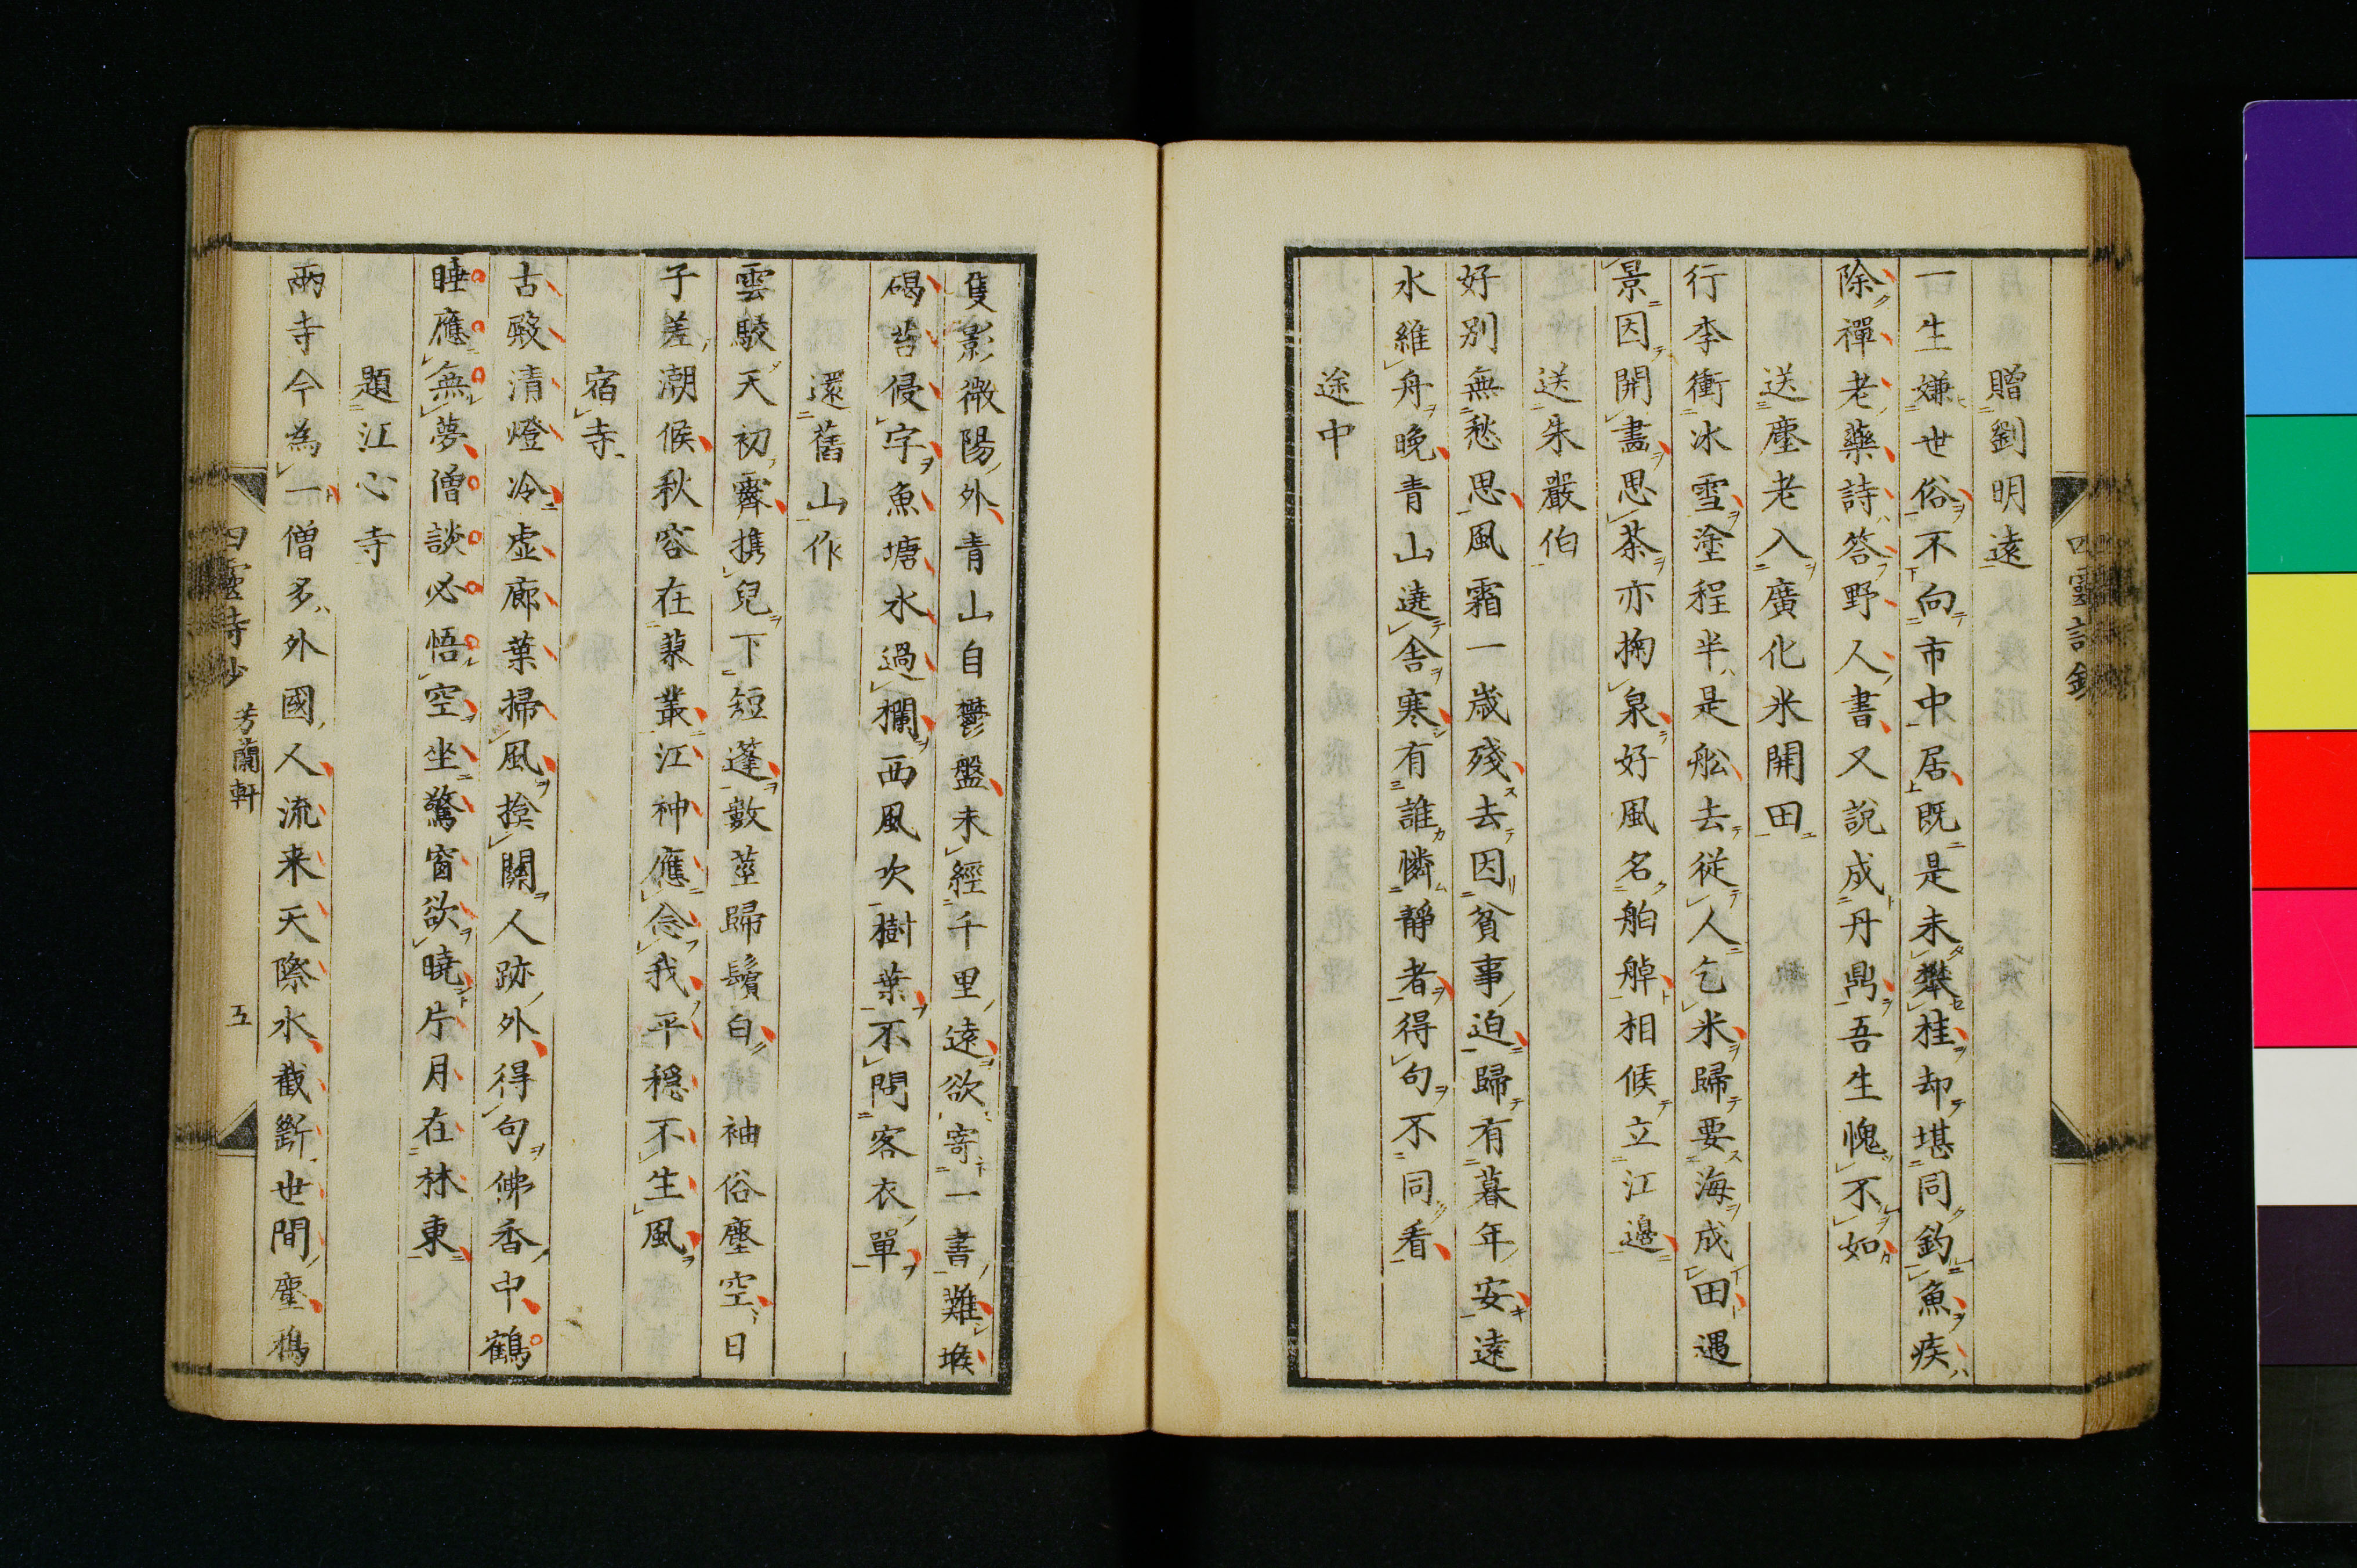 贈劉明遠
一生嫌世俗不向市中居既是未攀桂却堪同釣魚疾
除禪老藥詩答野人書又說成丹鼎吾生愧不如
送塵老入廣化米開田
行李衝冰雪塗程半是舩去從人乞米歸要海成田遇
景因開畫思茶亦掬泉好風名舶舻相候立江邊
送朱嚴伯
好別無愁思風霜一歲殘去因貧事迫歸有暮年安遠
水維舟晚青山遶舍寒有誰憐靜者得句不同看
途中
隻影微陽外青山自鬱盤未經千里遠欲寄一書難堠
碣苔侵字魚塘水過欄西風吹樹葉不問客衣單
還舊山作
雲駮天初霽携兒下短蓬數莖歸鬢白袖俗塵空日
子差潮候秋容在蓼叢江神應念我平穩不生風
宿寺
古殿清燈冷虛廊葉掃風掩關人跡外得句佛香中鶴
睡應無夢僧談必悟空坐驚窗欲曉片月在林東
題江心寺
兩寺今為一僧多外國人流来天際水截斷世間塵鴉
四靈詩鈔
四靈詩鈔 芳蘭軒 五